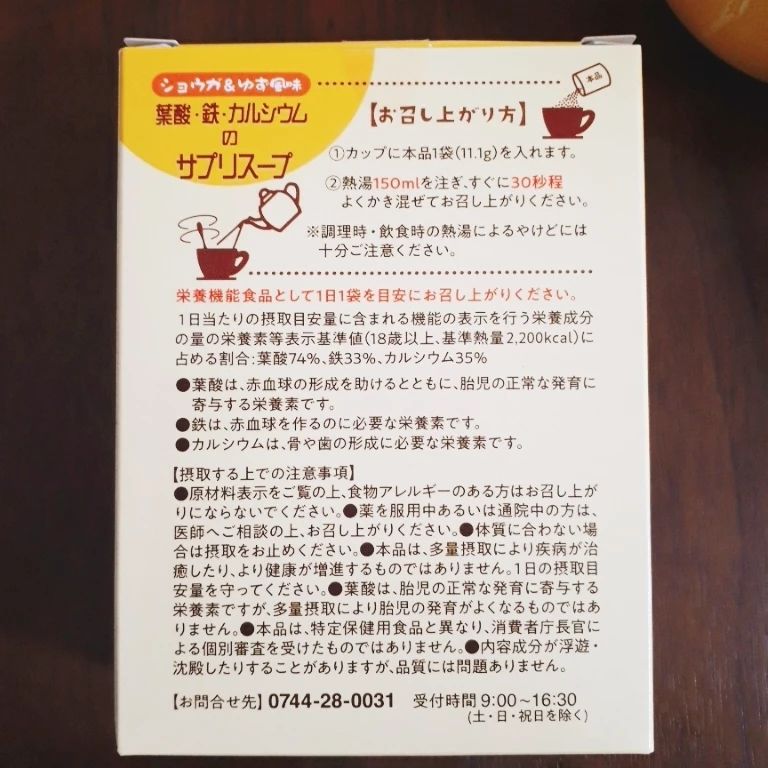 ショウガ&ゆず風味
葉酸・鉄・カルシウム
の
サプリスープ
【お召し上がり方】
本品
①カップに本品1袋(11.1g)を入れます。
②熱湯150mlを注ぎ、すぐに30秒程
よくかき混ぜてお召し上がりください。
※調理時・飲食時の熱湯によるやけどには
十分ご注意ください。
栄養機能食品として1日1袋を目安にお召し上がりください。
1日当たりの摂取目安量に含まれる機能の表示を行う栄養成分
の量の栄養素等表示基準値(18歳以上、基準熱量2,200kcal)に
占める割合:葉酸74%、鉄33%、カルシウム35%
●葉酸は、赤血球の形成を助けるとともに、胎児の正常な発育に
寄与する栄養素です。
●鉄は、赤血球を作るのに必要な栄養素です。
●カルシウムは、骨や歯の形成に必要な栄養素です。
【摂取する上での注意事項】
●原材料表示をご覧の上、食物アレルギーのある方はお召し上が
りにならないでください。●薬を服用中あるいは通院中の方は、
医師へご相談の上、お召し上がりください。●体質に合わない場
合は摂取をお止めください。●本品は、多量摂取により疾病が治
癒したり、より健康が増進するものではありません。1日の摂取目
安量を守ってください。●葉酸は、胎児の正常な発育に寄与する
栄養素ですが、多量摂取により胎児の発育がよくなるものではあ
りません。●本品は、特定保健用食品と異なり、消費者庁長官に
よる個別審査を受けたものではありません。●内容成分が浮遊・
沈殿したりすることがありますが、品質には問題ありません。
【お問合せ先】0744-28-0031 受付時間 9:00~16:30
(土・日・祝日を除く)